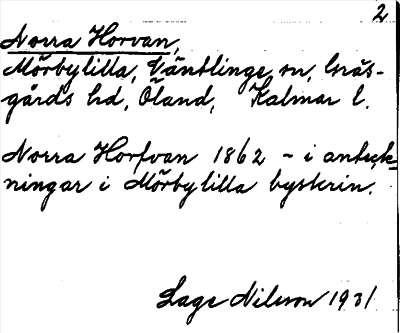 2
Norra Horvan,
Mörbylilla, Ventlinge sn, Gräs-
gårds hd, Öland, Kalmar l.
Norra Horfvan 1862 - i anteck-
ningar i Mörbylilla byskrin.
Lage Nilsson 1931